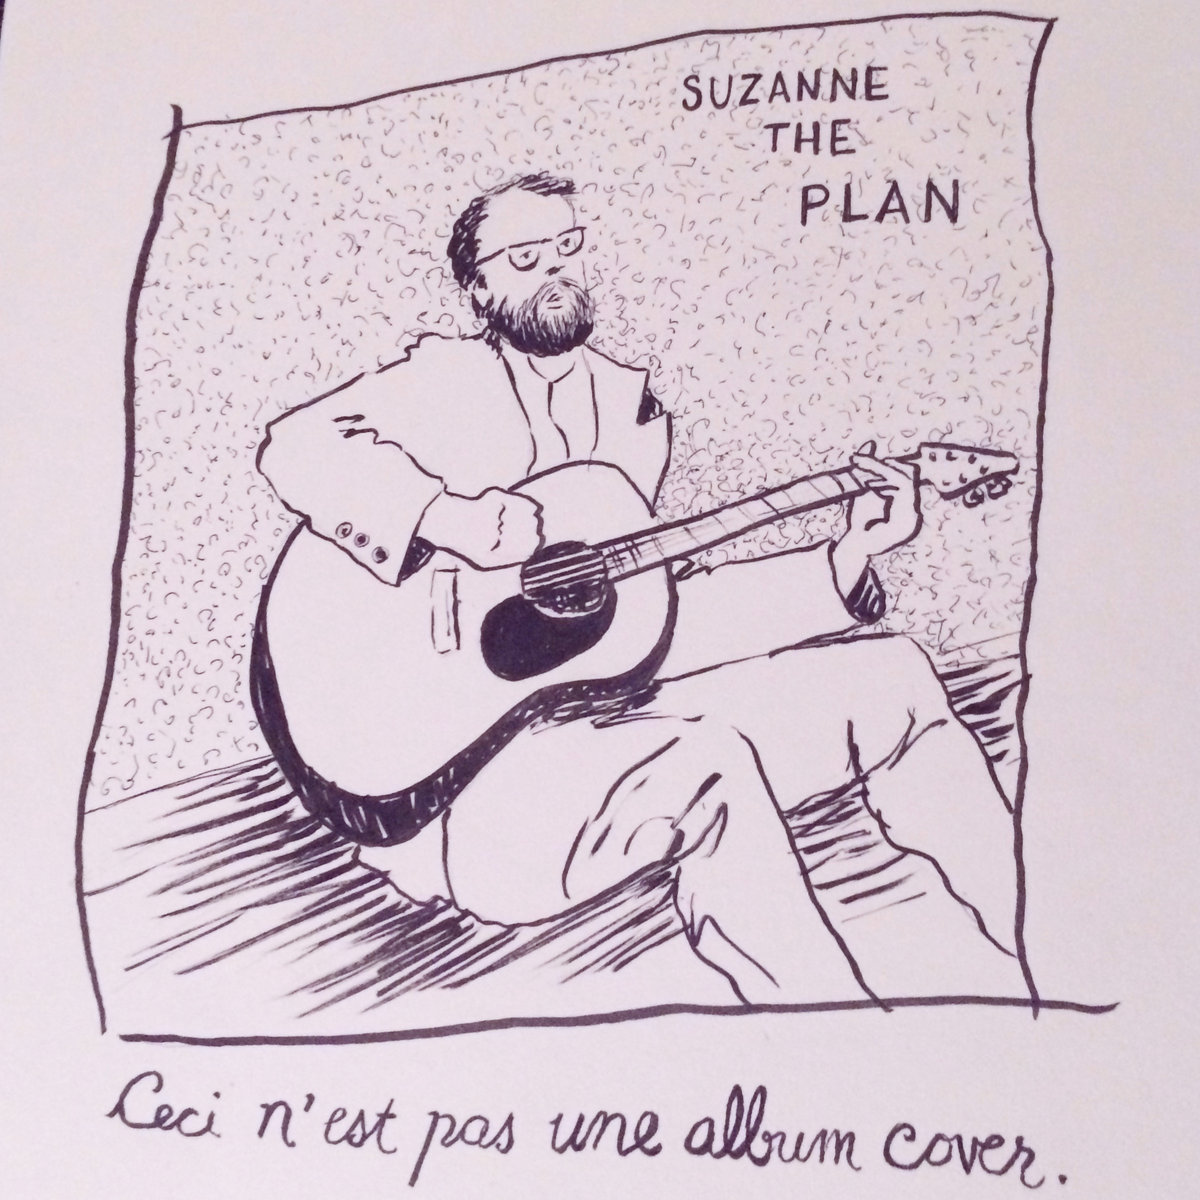 SUZANNE
THE
PLAN
Ceci n'est pas une album cover.